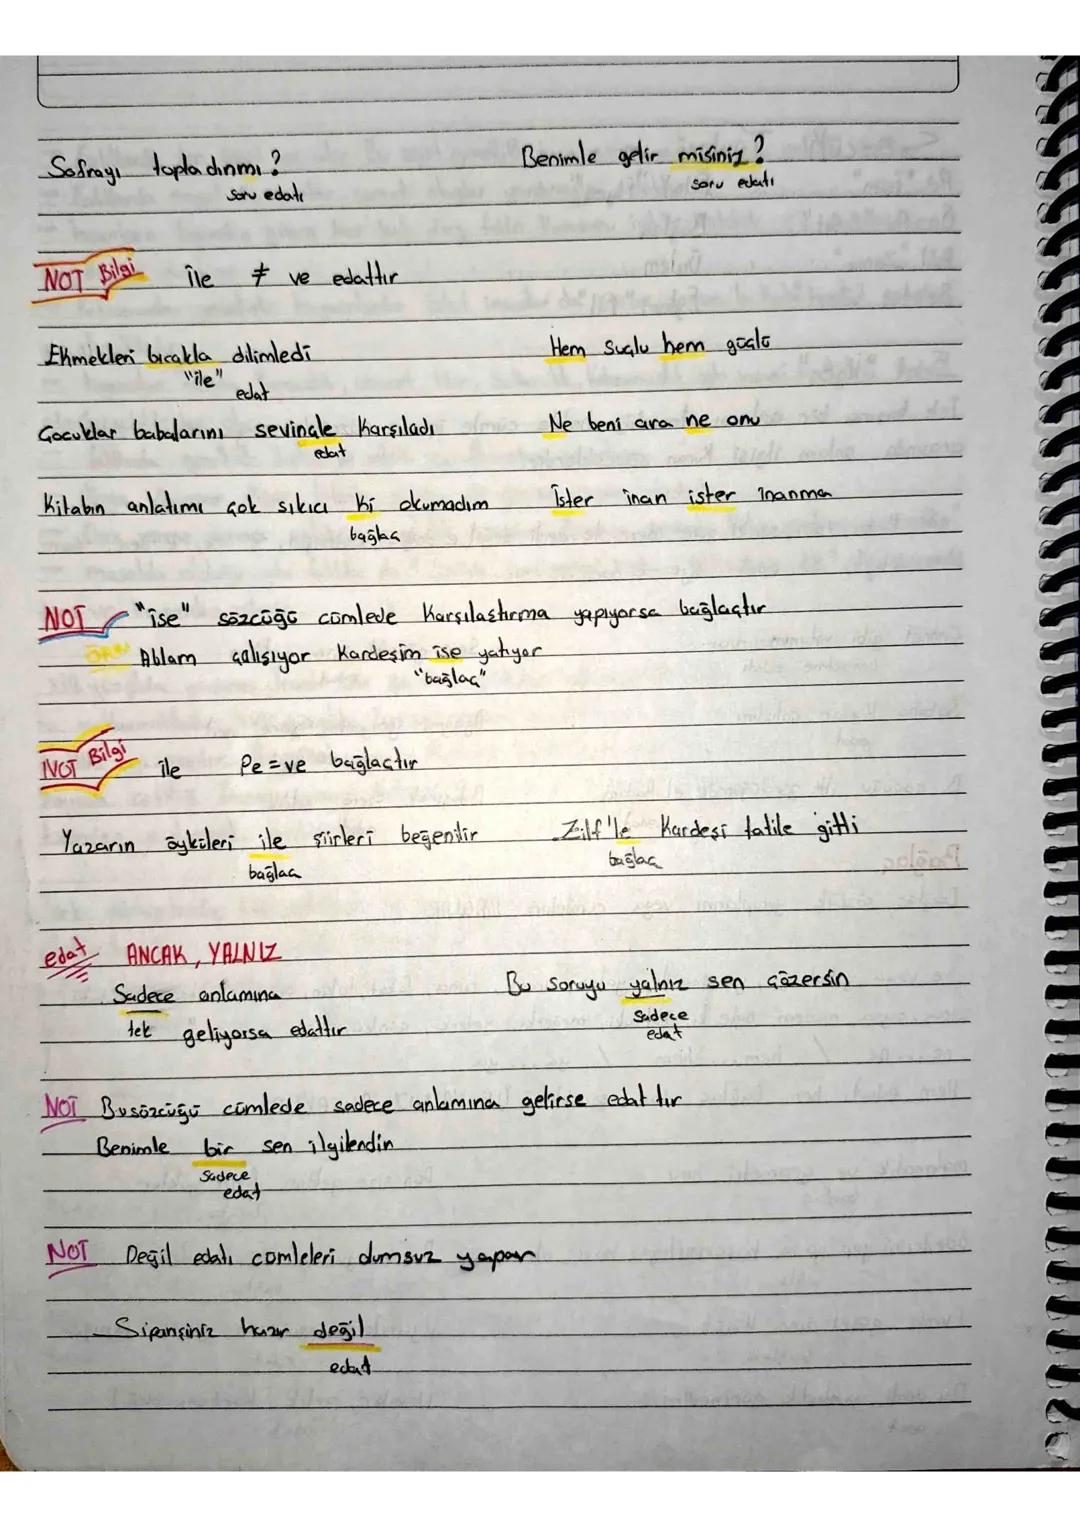 Sofrayı topladınmı?
soru edatı
Benimle gelir misiniz?
soru edatı
NOT Bilgi ile ≠ ve edattır
Ekmekleri bıcakla dilimledi
"ile" edat
Hem Suçlu hem güçlü
Çocuklar babalarını sevinçle Karşıladı
edat
Ne beni ara ne onu
Kitabın anlatımı çok sıkıcı ki okumadım
bağlaç
İster inan ister inanma
NOT "ise" sözcüğü cümlede Karşılaştırma yapıyorsa bağlaçtır
ÖRN Ablam çalışıyor Kardeşim ise yatıyor
"bağlaç"
NOT Bilgi ile Pe=ve bağlaçtır
Yazarın öyküleri ile şiirleri beğenilir
bağlaç
Zilf'le Kardeşi tatile gitti
bağlaç
edat ANCAK, YALNIZ
Sadece anlamına
tek geliyorsa edattır
Bu soruyu yalnız sen çözersin
Sadece
edat
NOT Busözcüğü cümlede sadece anlamına gelirse edattır
Benimle bir sen ilgilendin
Sadece
edat
NOT Değil edatı cümleleri olumsuz yapar
Siparişiniz hazır değil
edat